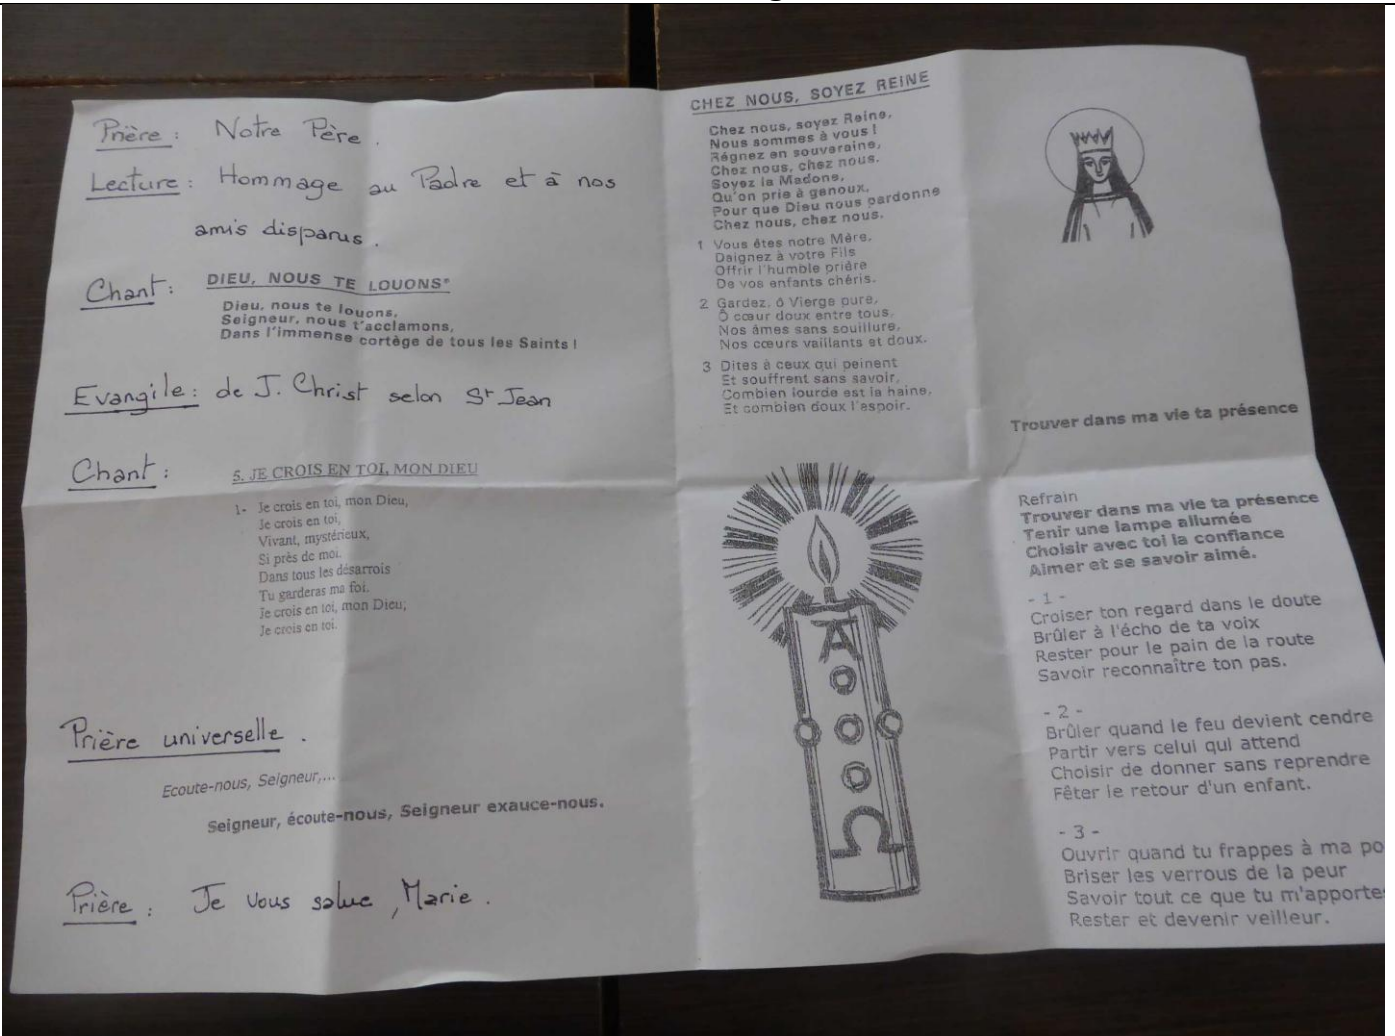 Prière : Notre Père.
Lecture : Hommage au Padre et à nos
amis disparus.
Chant :
DIEU, NOUS TE LOUONS*
Dieu, nous te louons,
Seigneur, nous t'acclamons,
Dans l'immense cortège de tous les Saints !
Evangile : de J. Christ selon St Jean
Chant :
5. JE CROIS EN TOI, MON DIEU
1- Je crois en toi, mon Dieu,
Je crois en toi,
Vivant, mystérieux,
Si près de moi.
Dans tous les désarrois
Tu garderas ma foi.
Je crois en toi, mon Dieu;
Je crois en toi.
Prière universelle.
Ecoute-nous, Seigneur,...
Seigneur, écoute-nous, Seigneur exauce-nous.
Prière : Je vous salue, Marie.
CHEZ NOUS, SOYEZ REINE
Chez nous, soyez Reine,
Nous sommes à vous !
Régnez en souveraine,
Chez nous, chez nous.
Soyez la Madone,
Qu'on prie à genoux,
Pour que Dieu nous pardonne
Chez nous, chez nous.
1 Vous êtes notre Mère,
Daignez à votre Fils
Offrir l'humble prière
De vos enfants chéris.
2 Gardez, ô Vierge pure,
Ô cœur doux entre tous,
Nos âmes sans souillure,
Nos cœurs vaillants et doux.
3 Dites à ceux qui peinent
Et souffrent sans savoir,
Combien lourde est la haine,
Et combien doux l'espoir.
A
Ω
Trouver dans ma vie ta présence
Refrain
Trouver dans ma vie ta présence
Tenir une lampe allumée
Choisir avec toi la confiance
Aimer et se savoir aimé.
- 1 -
Croiser ton regard dans le doute
Brûler à l'écho de ta voix
Rester pour le pain de la route
Savoir reconnaître ton pas.
- 2 -
Brûler quand le feu devient cendre
Partir vers celui qui attend
Choisir de donner sans reprendre
Fêter le retour d'un enfant.
- 3 -
Ouvrir quand tu frappes à ma po
Briser les verrous de la peur
Savoir tout ce que tu m'apporte
Rester et devenir veilleur.